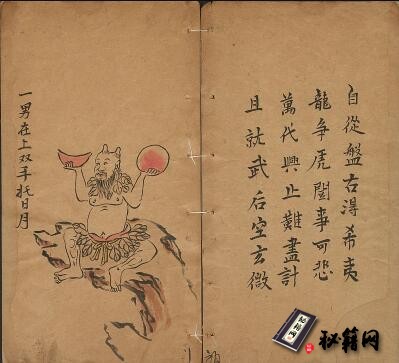 自從盤古淂希夷
龍爭虎闘事可悲
萬代興止難盡計
且就武后空玄微
一男在上双手托日月
秘籍网
秘籍网